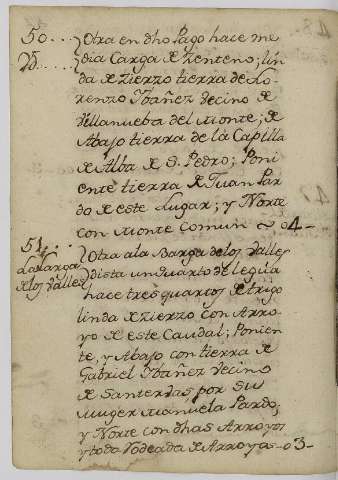 50... Otra en dho Pago hace me
25.... dia Carga de Zenteno; lin
da de zierzo tierra de Lo
renzo Ybañez Vecino de
Villanueba del Monte; de
Abajo tierra de la Capilla
de Alba de S. Pedro; Poni
ente tierra de Juan Par
do de este Lugar; y Norte
con Monte Comun ~ 04-
51... Otra ala Barga delos Valles
La Varga dista un quarto de legua
de los Valles hace tres quartos de trigo
linda de zierzo con Arro
yo de este Caudal; Ponien
te, y Abajo con tierra de
Gabriel Ybañez Vecino
de Santerbas por su
Muger Manuela Pardo,
y Norte con dhas Arroyos
y toda Rodeada de Arroyos - 03-